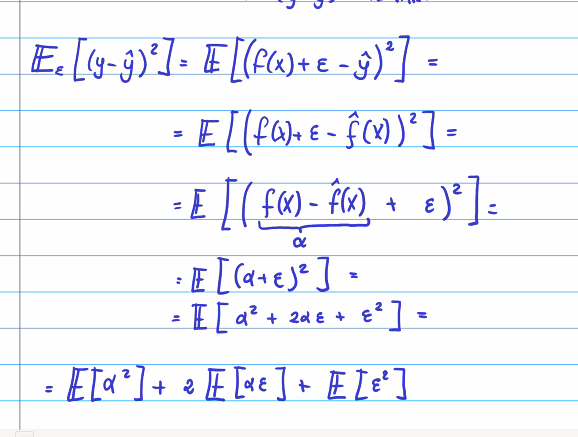 𝔼ε[(y-ŷ)²] = 𝔼[(f(x)+ε-ŷ)²] =
= 𝔼[(f(x)+ε-f̂(x))²] =
= 𝔼[(f(x)-f̂(x) + ε)²] =
α
= 𝔼[(α+ε)²] =
= 𝔼[α² + 2αε + ε²] =
= 𝔼[α²] + 2𝔼[αε] + 𝔼[ε²]